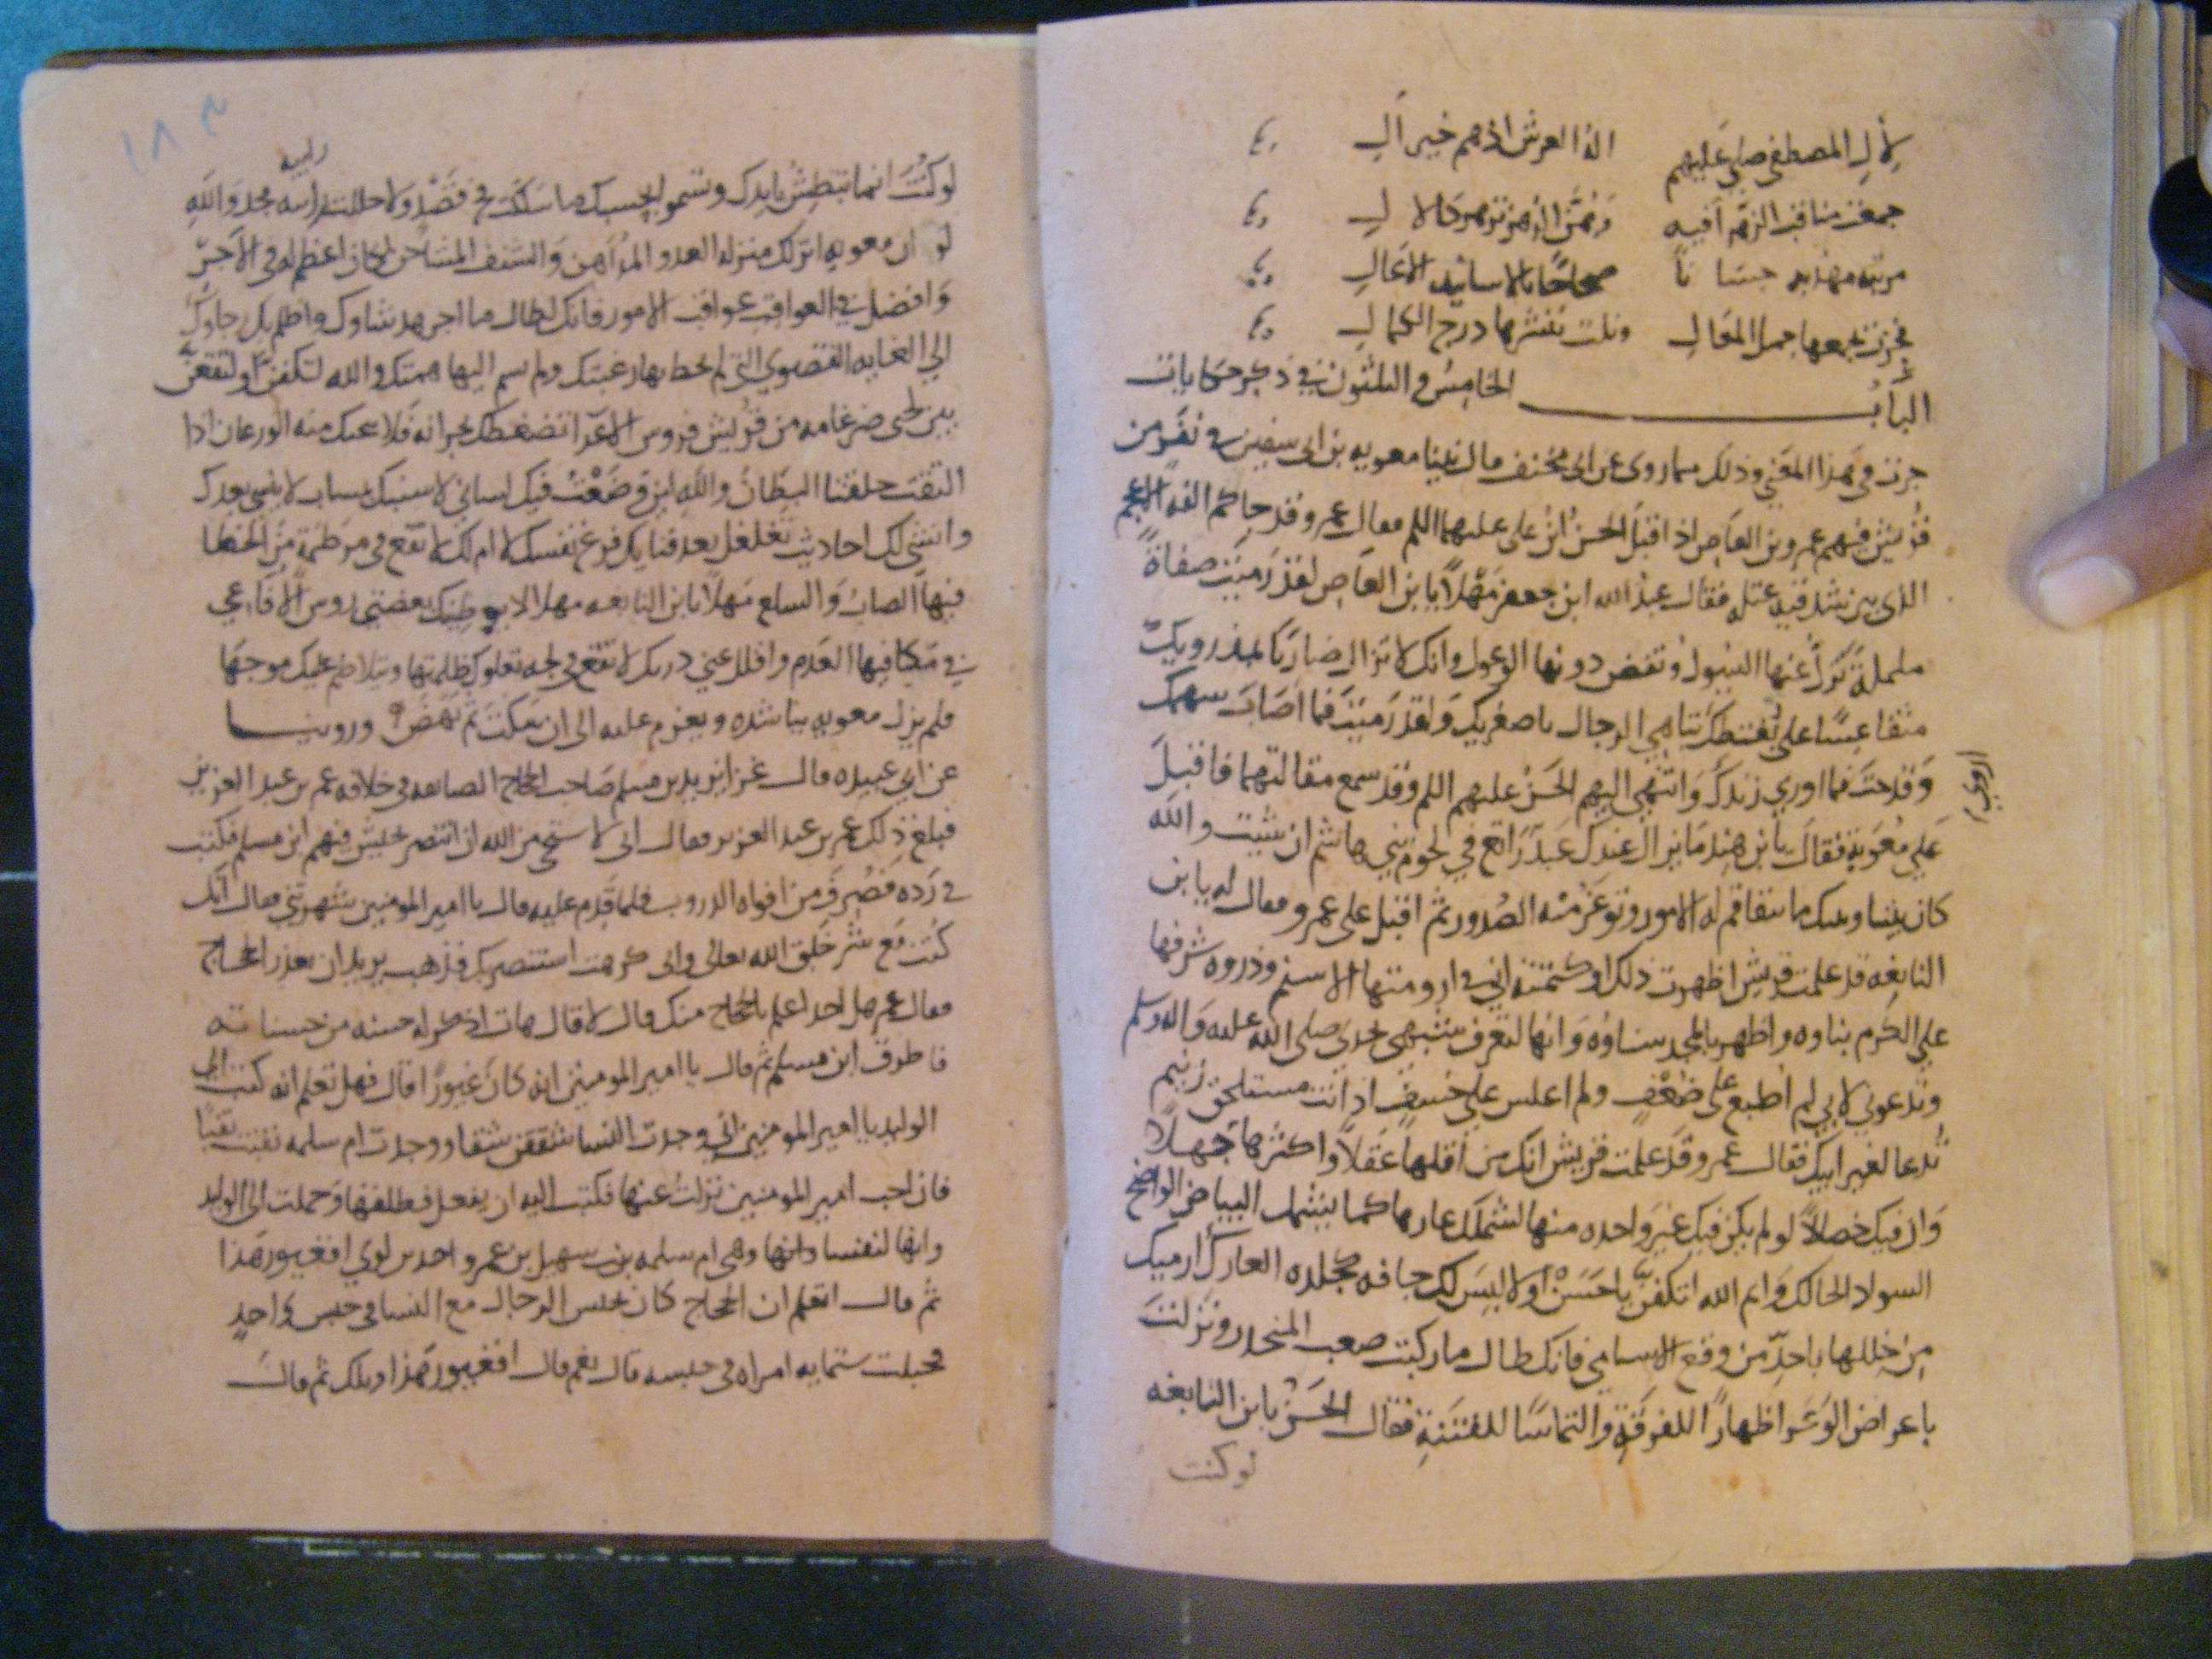 لأل المصطفى صلى عليهم اله العرش اذ هم خير ال
جمعت مناقب الزهر افيه
مرتبه مهذبه حسانا صحاحا بالاسانيد الاعال
فحزت بجمعها جمل المعال ونلت بنشرها درج الكمال
الباب الخامس والثلثون في ذكر حكايات
جرت في هذا المعني وذلك مما روى عن ابى مخنف قال بينا معويه بن ابى سفين في نفر من
قريش فيهم عمرو بن العاص اذ اقبل الحسن ابن على عليهما السلم فقال عمرو قد جاكم الفه العجم
الذى بين شدقيه عقله فقال عبد الله ابن جعفر مهلا يا بن العاص لقد رميت صفاة
ململة تزل عنها السيول وتقض دونها الوعول وانك لا تزال ضاربا
متقاعسا على تناهي الرجال باصغريك ولقد رميت فما اصاب سهمك
وقدحت فما اوري زندك وانتهى اليهم الحسن عليهم السلم وقد سمع مقالتهما فاقبل
علي معوية فقال يا بن هند ما يزال عندك عبد راتع في لحوم بني هاشم ان شيت والله
كان بيننا وبينك ما تتفاقم له الامور وتوغر منه الصدور ثم اقبل على عمرو فقال له يا بن
النابغه قد علمت قريش اظهرت ذلك او كتمته اني في ارومتها الاسنم وذروه شرفها
علي الكرم بناوه واظهر بالمجد سناوه وانها لتعرف شبهي بجدي صلى الله عليه واله وسلم
وتدعوني لابي لم اطبع على ضعف ولم اعلس علي خسف اذ انت مستلحق زنيم
تدعا لغير ابيك فقال عمرو قد علمت قريش انك من اقلها عقلا واكثرها جهلا
وان فيك خصالا لو لم يكن فيك غير واحده منها لشملك عارها كما يشمل البياض الواضح
السواد الحالك وايم الله لتكفن يا حسن او لالبس لك حافه كجلده العارك ارميك
من خللها باحد من وقع الاسامي فانك طال ما ركبت صعب المنحدر ونزلت
باعراض الوعر اظهارا للفرقة والتماسا للفتنة فقال الحسن يا بن النابغه
لو كنت
لو كنت انما تبطش بايدك وتسمو بحسبك ما سلكت فج قصد ولا حللت رابيه مجد والله
لو ان معويه انزلك منزله العدو المداهن والشنف المشاحن لكان اعظم له في الاجر
وافضل في العواقب عواقب الامور فانك لطال ما اجرهد شاوك واطلم بك رجاوك
الي الغايه القصوي التي لم تحط بها رغبتك ولم تسم اليها همتك والله لتكفن او لتقعن
بين لحيي ضرغامه من قريش فروس الاعدا تضغطك بجرانه فلا عنك منه الورعان اذا
التقت حلقتا البطان والله لين وضعت فيك لساني لاسبنك بساب لا ينسى بعدك
وانثني لك احاديث تغلغل بعد فنايك فرغ نفسك لا ام لك لا تقع في مرطمة من الخطا
فيها الصاب والسلع مهلا يا بن النابغه مهلا لا يوطينك بعضتي روس الافاعي
في مكافيها العدم واقلل عني دربك لا تقع في لجه تعلوك ظلمتها ويتلاطم عليك موجها
فلم يزل معويه يناشده ويعزم عليه الى ان سكت ثم نهض وروينا
عن ابي عبيده قال غزا يزيد بن مسلم صاحب الحجاج الصايفه في خلافه عمر بن عبد العزيز
فبلغ ذلك عمر بن عبد العزيز فقال انى لا ستحي من الله ان انتصر بجيش فيهم ابن مسلم فكتب
في رده فصرف من افواه الدروب فلما قدم عليه قال يا امير المومنين شهرتني فقال انك
كنت مع شر خلق الله تعالى وانى كرهت استنصر بك فذهب يزيد ان يعذر الحجاج
فقال عمر هل احد اعلم بالحجاج منك قال لا قال هات اذكر له حسنه من حسناته
فاطرق ابن مسلم ثم قال يا امير المومنين انه كان غيورا قال فهل تعلم انه كتب الي
الوليد يا امير المومنين اني وجدت النسا شققن شقا ووجدت ام سلمه نقبت نقبا
فان احب امير المومنين نزلت عنها فكتب اليه ان يفعل فطلقها وحملت الى الوليد
وانها لنفسا وانها وهى ام سلمه بنت سهيل بن عمرو احد بن لوي افغيور هذا
ثم قال اتعلم ان الحجاج كان يحبس الرجال مع النسا في حبس واحد
فحبلت ستمايه امراه في حبسه قال نعم قال افغيور هذا ويلك ثم قال